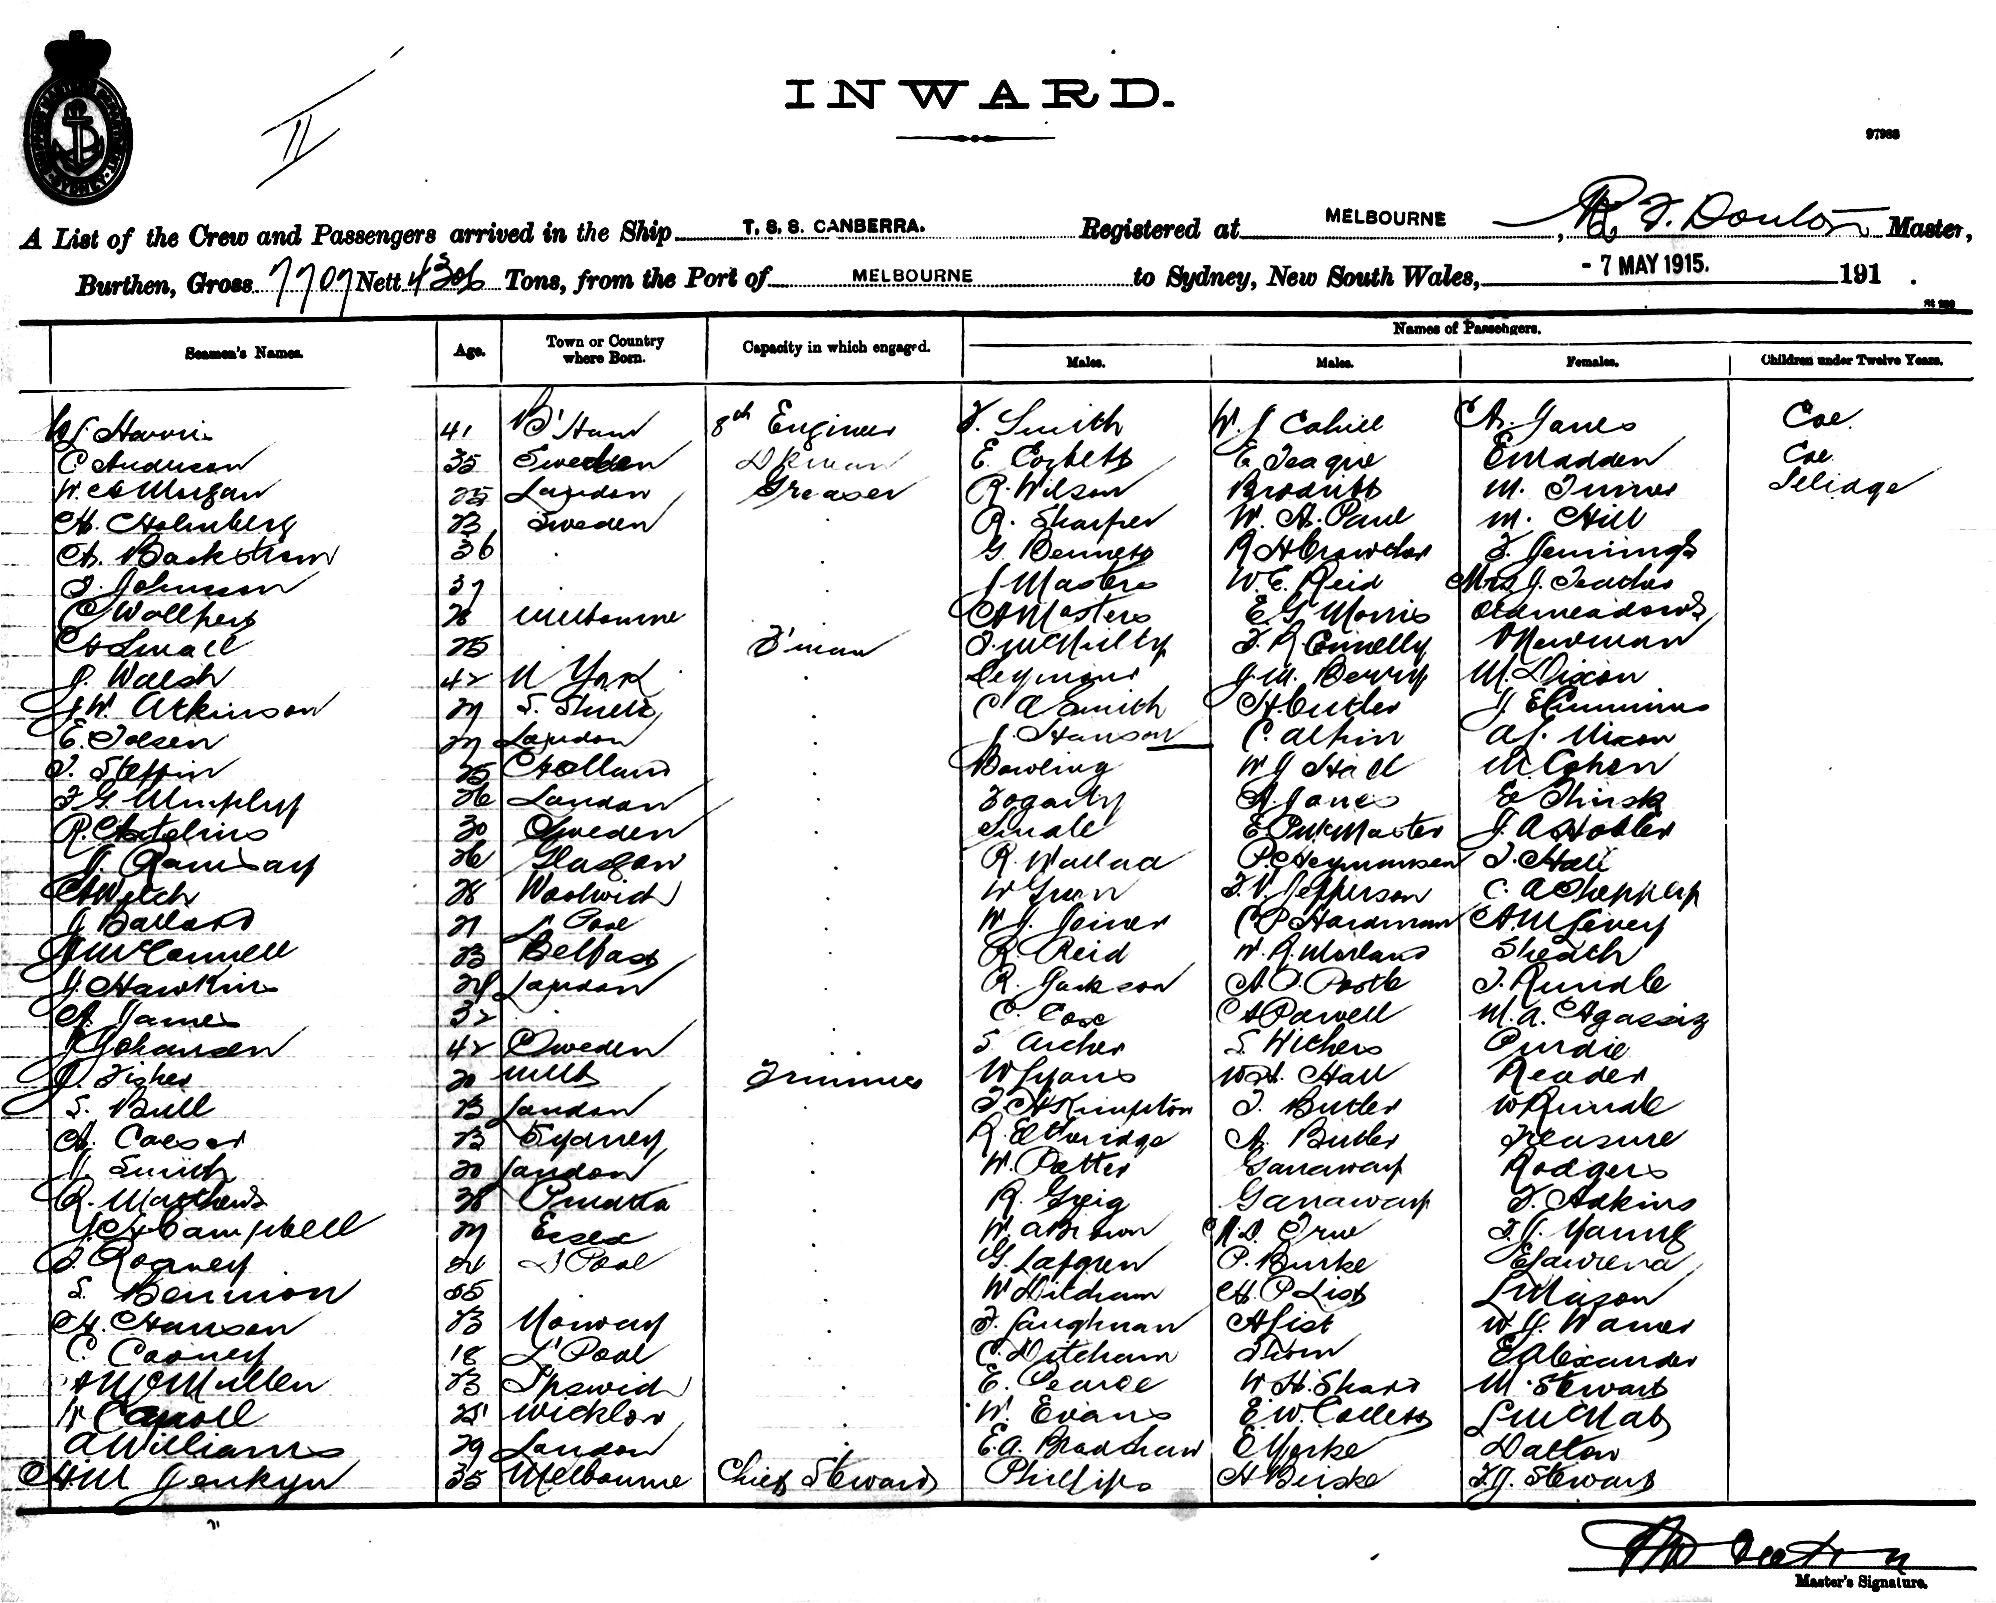 INWARD.
II
97988
A List of the Crew and Passengers arrived in the Ship T. S. S. CANBERRA. Registered at MELBOURNE, R J Doulton Master,
Burthen, Gross 7707 Nett 4306 Tons, from the Port of MELBOURNE to Sydney, New South Wales, - 7 MAY 1915. 191 .
Names of Passengers.
Seamen's Names. Age. Town or Country where Born. Capacity in which engaged. Males. Males. Females. Children under Twelve Years.
W J Harris 41 B'Ham 8th Engineer F. Smith W. J Cahill A. Jones Coe
C Anderson 35 Sweden E. Corbett E Teague E Madden Coe
W. Morgan 25 London Greaser R. Wilson Brodribb M. Turner Selidge
H. Holmberg 23 Sweden . R. Sharper W. A. Paul M. Hill
A. Backstrom 36 . . G. Bennett R H Crowther F. Jennings
J. Johnson 37 . J Masters W. E. Reid Mrs J. Teather
C Wollherb 28 Melbourne A Masters E. G Morris Oldmeadows
A Small 25 . F'man J. McNulty F. R. Connelly Newman
J. Walsh 42 N York . Seymour J. M. Berry M. Dixon
J W. Atkinson 27 S. Shields . C A Smith H. Cutler J E Cummins
E. Tolsen 27 London . J. Hanson C. Athin A J. Nixon
J. Steffin 25 Holland . Bowling W J Hall M. Cohen
F G Murphy 26 London . Fogarty A. Jones E Thirsk
R. Catelins 30 Sweden . Smale E. P McMaster J. A Hobler
J. Ramsay 26 Glasgow . R. Wallace P. Heymansen F. Hall
A Welch 28 Woolwich . W Green F. V. Jefferson C. A Sheppery
J Ballard 27 L' Pool . W. J. Joiner C P Hardman A. M Levey
J McConnell 23 Belfast . R. Reid W. R. Morland Sheath
J. Hawkins 28 London . R. Jackson A. P. Postle F. Rundle
A. James 32 . . C. Cox A Powell M. A. Agassiz
J Johansen 42 Sweden . S Archer S. Withers Purdie
J. Fisher 20 Melb Trimmer W Lyons W. H. Hall Reader
S. Bull 23 London . F. H Kimpton F. Butler W Rundle
A. Caesar 23 Sydney . R. Etheridge A. Butler Treasure
Smith 20 London . W. Potter Ganaway Rodgers
R. Matthews 28 P'matta . R. Greig Ganaway F. Adkins
J. H Campbell 27 Essex . W. A Brown Irw F. J. Young
J. Rooney 24 L' Pool . G. Lofgren P. Burke E Lawrence
S. Bennion 35 . . W Ditcham H. P List L Mason
H. Hanson 23 Norway . F. Laughnan A List W. J. Warner
C. Cooney 18 L' Pool . C. Ditcham Tivon E Alexander
A McMullen 23 Ipswich . E. Pearce W. H. Sharp M. Stewart
W Carroll 25 Wicklow . W. Evans E. W. Collett L McNab
A Williams 29 London . E. A. Bradshaw E Yorke Dalton
H. M Jenkyn 35 Melbourne Chief Steward Phillips A Birske F. J. Stewart
Master's Signature.